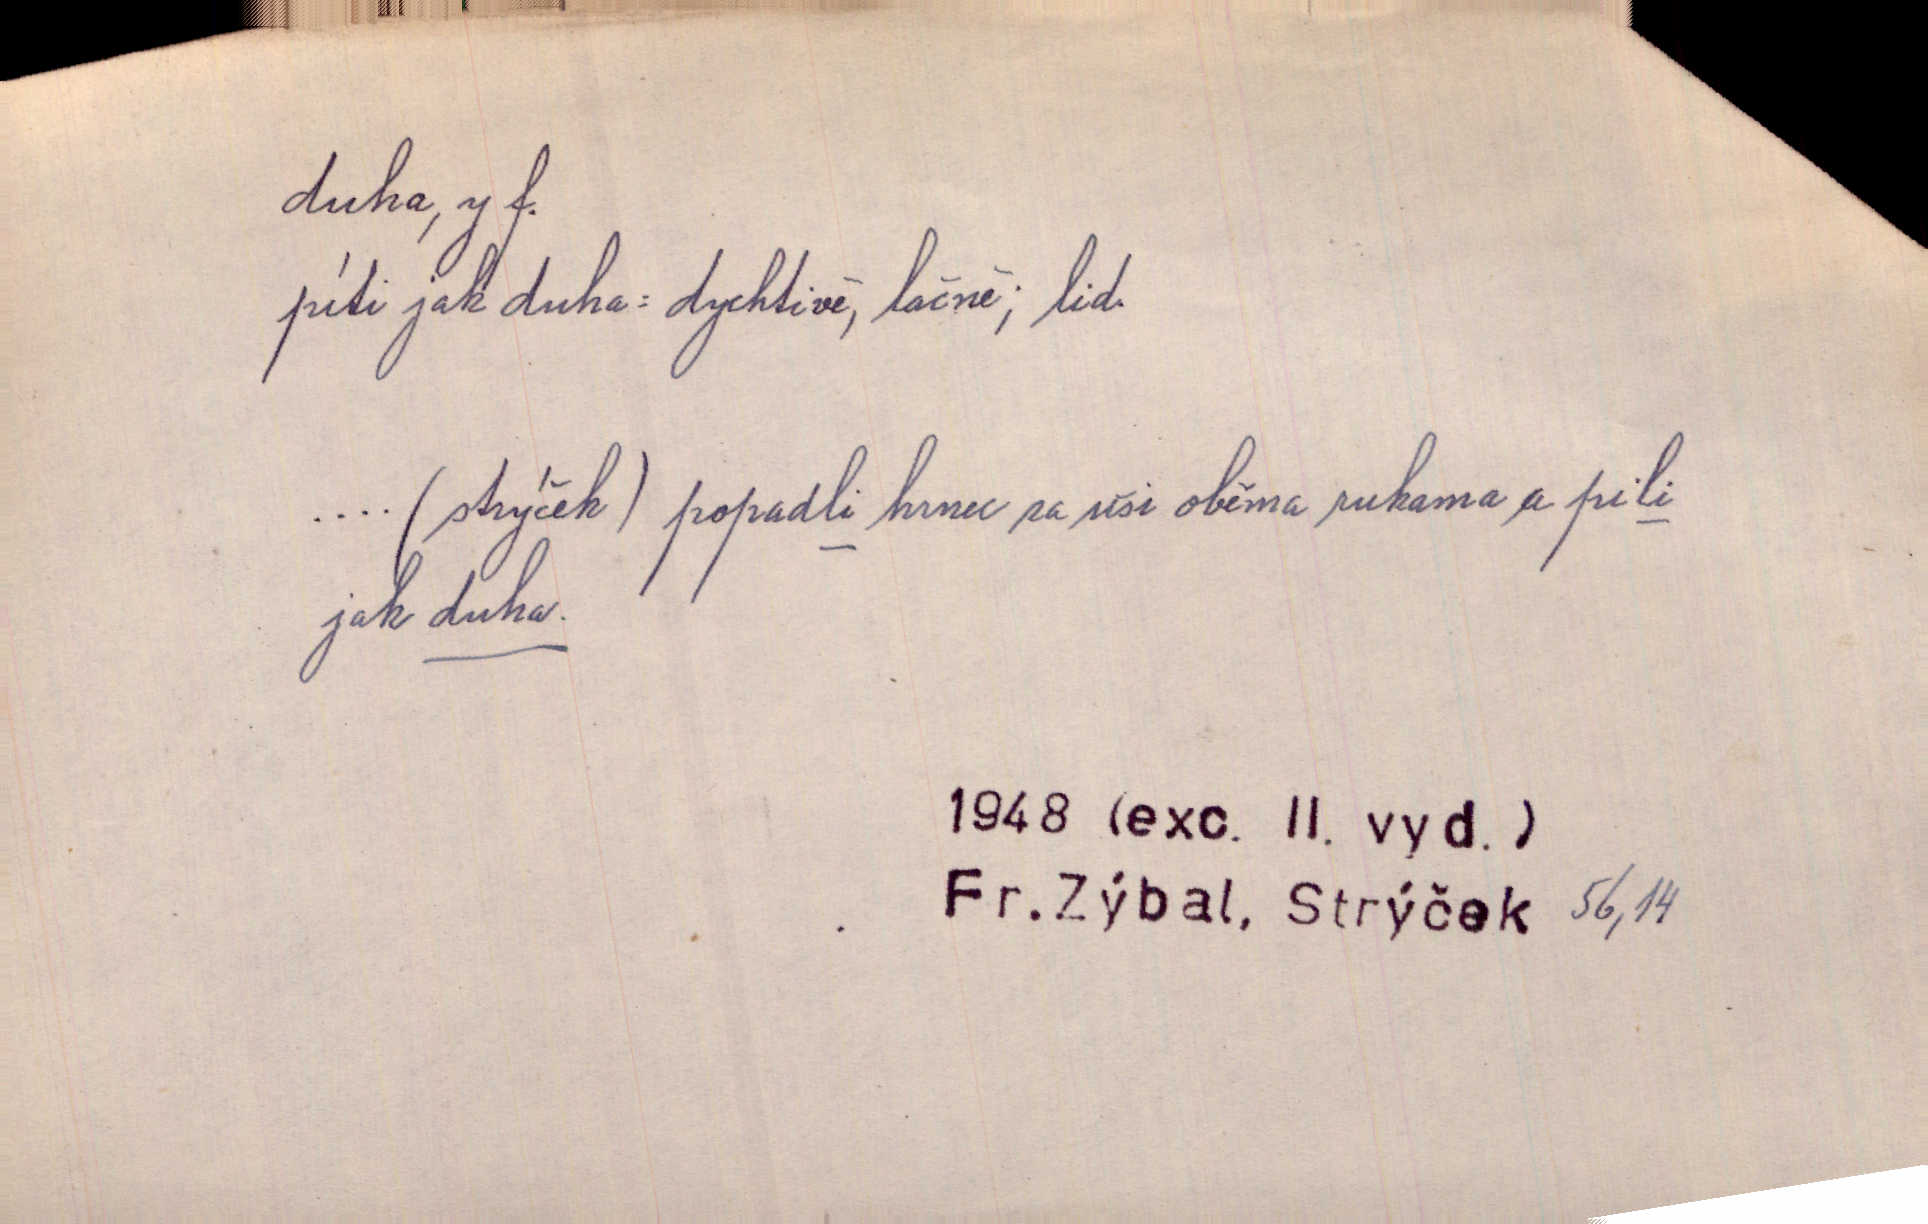 duha, y f.
píti jak duha = dychtivě, lačně; lid.
.... (strýček) popadli hrnec za uši oběma rukama a pili
jak duha.
1948 (exc. II. vyd. )
Fr. Zýbal, Strýček 56,14